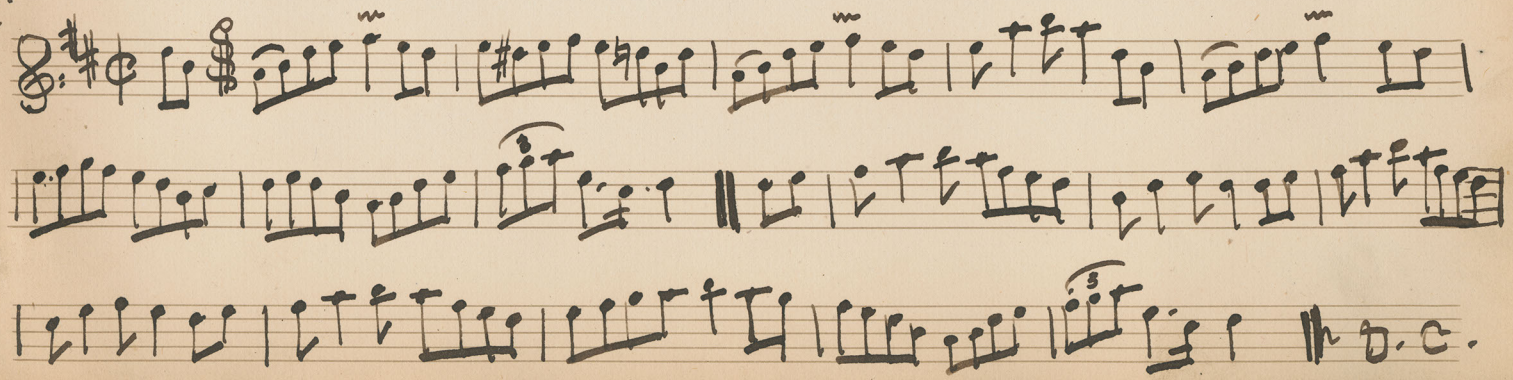 3
3
D. C.